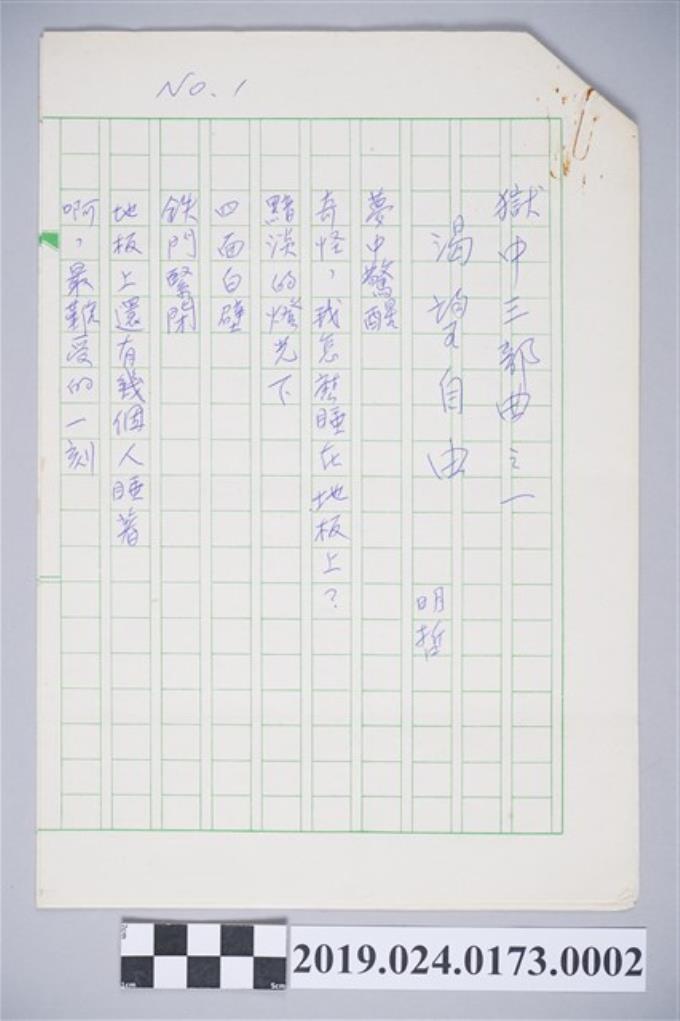 No. 1
獄中三部曲之一
渴望自由
明哲
夢中驚醒
奇怪，我怎麽睡在地板上？
黯淡的燈光下
四面白壁
鉄門緊閉
地板上還有幾個人睡著
啊，最難受的一刻
1cm
5cm
2019.024.0173.0002